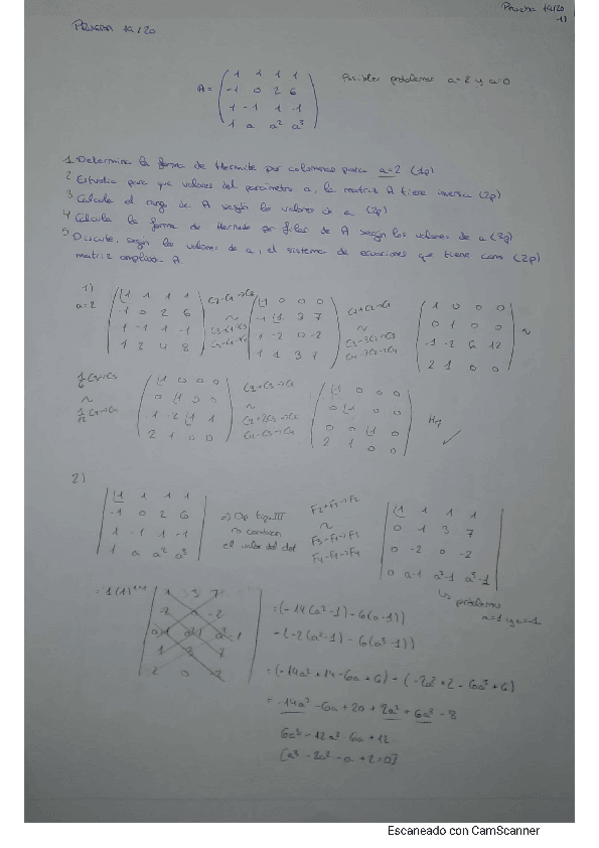 Prueba 14/20
1)
PRUEBA 14/20
A = ( 1 1 1 1
-1 0 2 6
1 -1 1 -1
1 a a² a³ )
Posibles problemas a=2 y a=0
1 Determina la forma de Hermite por columnas para a=2 (1p)
2 Estudia para que valores del parámetro a, la matriz A tiene inversa (2p)
3 Calcula el rango de A según los valores de a (2p)
4 Calcula la forma de Hermite por filas de A según los valores de a (3p)
5 Discute, según los valores de a, el sistema de ecuaciones que tiene como (2p)
matriz ampliada A
1)
a=2
1 1 1 1
-1 0 2 6
1 -1 1 -1
1 2 4 8
C2-C1→C2
~
C3-C1→C3
1 0 0 0
-1 1 3 7
1 -2 0 -2
1 1 3 7
C1+C2→C1
~
C3-3C2→C3
1 0 0 0
0 1 0 0
-1 -2 6 12
2 1 0 0
~
1/6 C3→C3
~
1/12 C4→C4
1 0 0 0
0 1 0 0
-1 -2 1 1
2 1 0 0
C1+C3→C1
~
C2+2C3→C2
C4-C3→C4
1 0 0 0
0 1 0 0
0 0 1 0
2 1 0 0
2)
1 1 1 1
-1 0 2 6
1 -1 1 -1
1 a a² a³
Op tipo III
el valor del det
F2+F1→F2
~
F3-F1→F3
F4-F1→F4
1 1 1 1
0 1 3 7
0 -2 0 -2
0 a-1 a²-1 a³-1
problemas
a=1 y a=-1
= 1(1)¹⁺¹
1 3 7
-2 0 -2
a-1 a²-1 a³-1
1 3 7
-2 0 -2
= (-14(a²-1) - 6(a-1))
- (-2(a²-1) - 6(a³-1))
= (-14a²+14-6a+6) - (-2a²+2-6a³+6)
= -14a² - 6a + 20 + 2a² + 6a³ - 8
6a³ - 12a² - 6a + 12
[a³ - 2a² - a + 2 = 0]
Escaneado con CamScanner